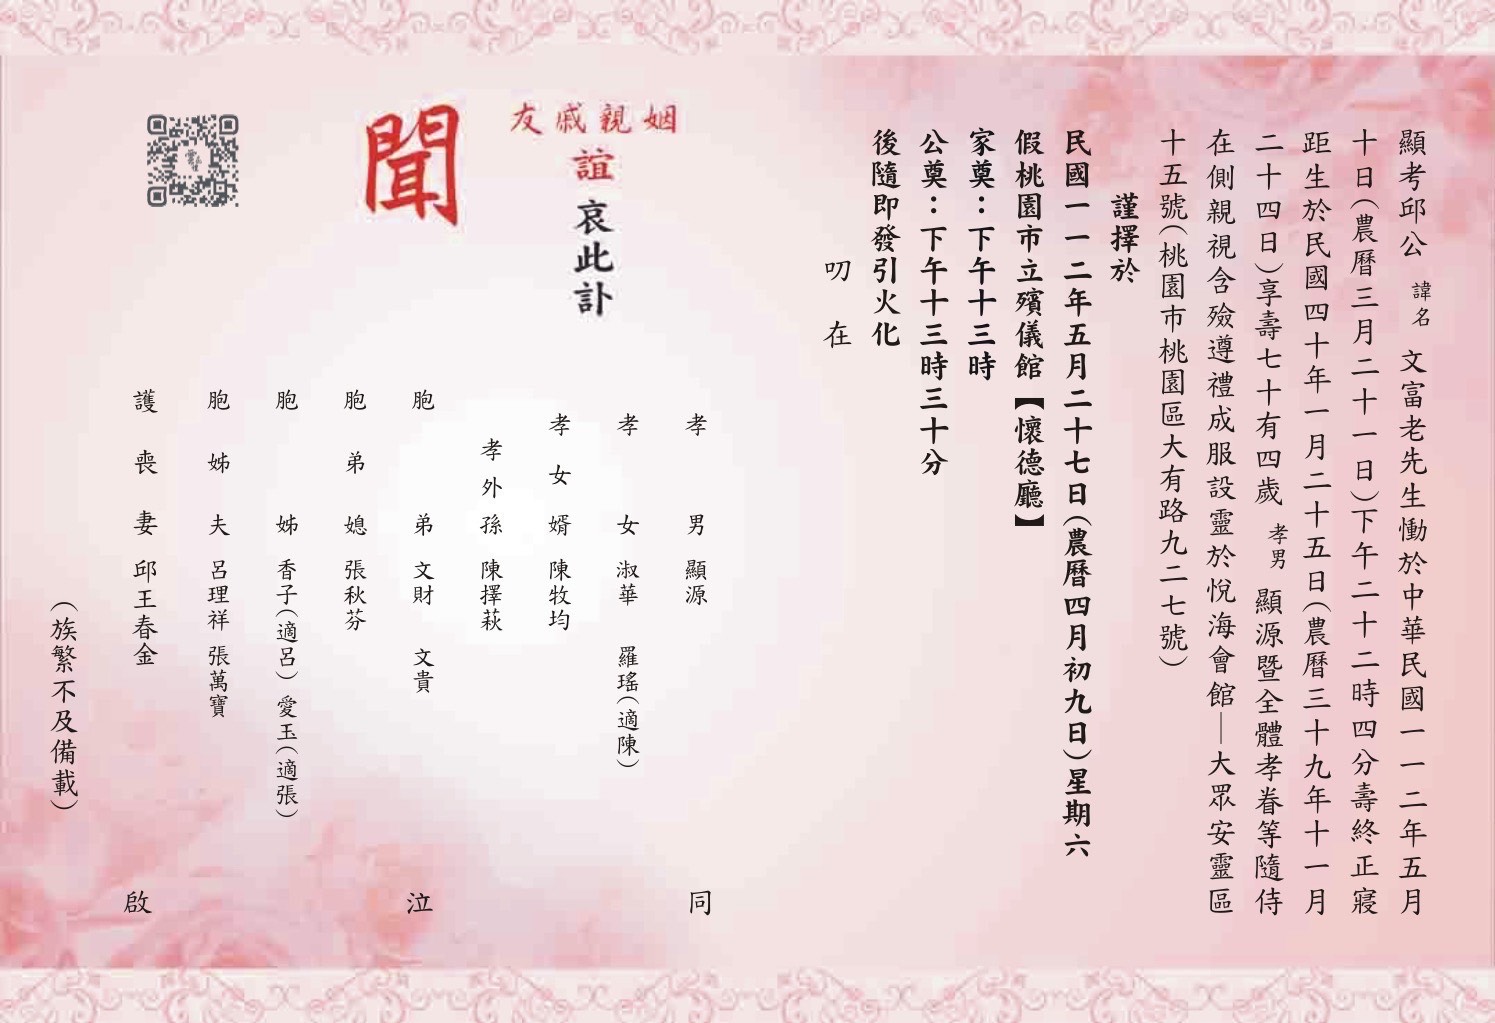 顯考邱公 諱名 文富老先生慟於中華民國一一二年五月
十日(農曆三月二十一日)下午二十二時四分壽終正寢
距生於民國四十年一月二十五日(農曆三十九年十一月
二十四日)享壽七十有四歲 孝男 顯源暨全體孝眷等隨侍
在側親視含殮遵禮成服設靈於悅海會館—大眾安靈區
十五號(桃園市桃園區大有路九二七號)
謹擇於
民國一一二年五月二十七日(農曆四月初九日)星期六
假桃園市立殯儀館【懷德廳】
家奠:下午十三時
公奠:下午十三時三十分
後隨即發引火化
叨在
姻親戚友
誼 哀此訃
聞
孝男 顯源
孝女 淑華 羅瑤(適陳)
孝女婿 陳牧均
孝外孫 陳擇萩
胞弟 文財 文貴
胞弟媳 張秋芬
胞姊 香子(適呂) 愛玉(適張)
胞姊夫 呂理祥 張萬寶
護喪妻 邱王春金
同泣啟
(族繁不及備載)